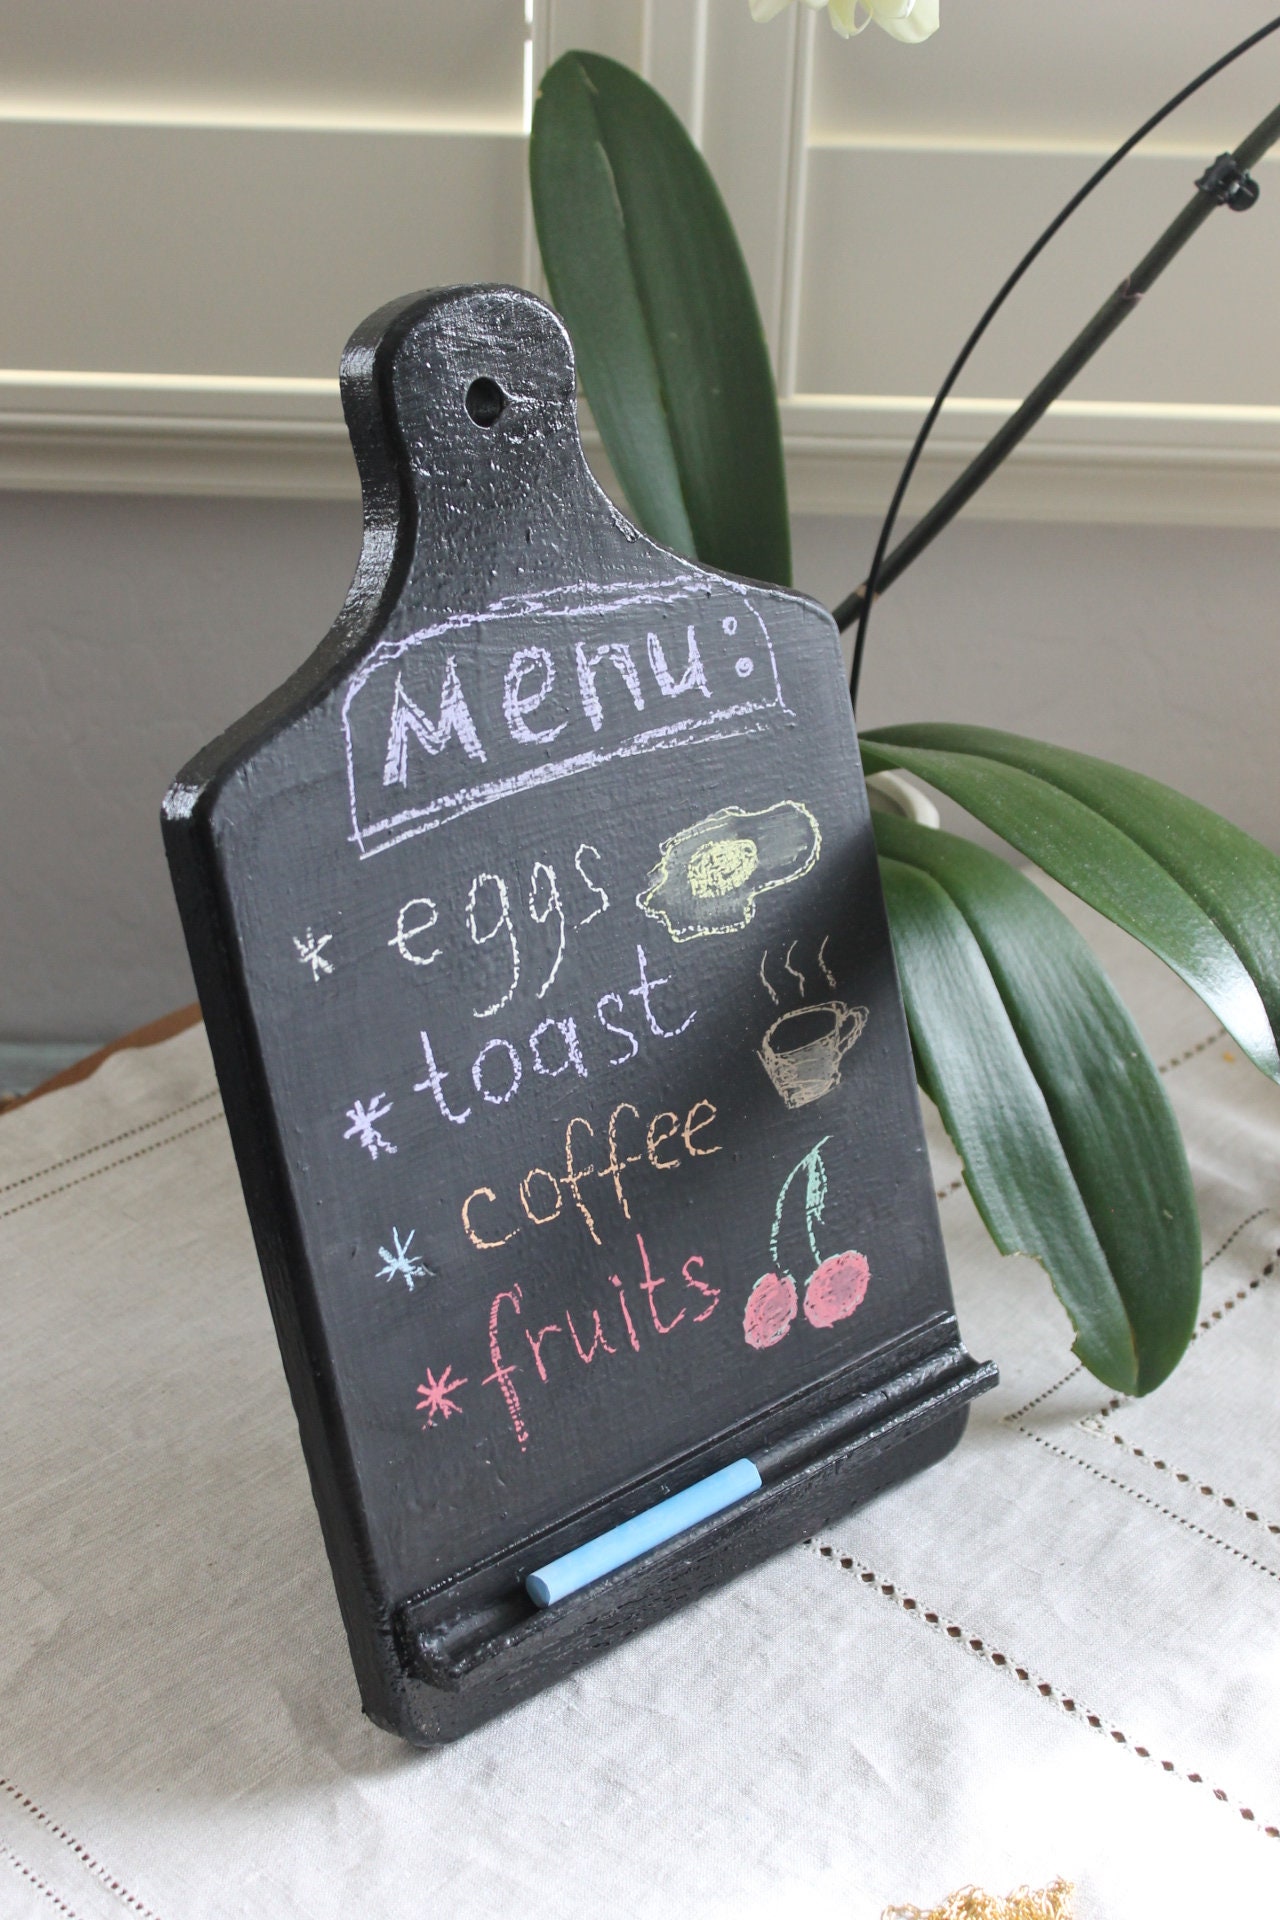 Menu:
* eggs
* toast
* coffee
* fruits